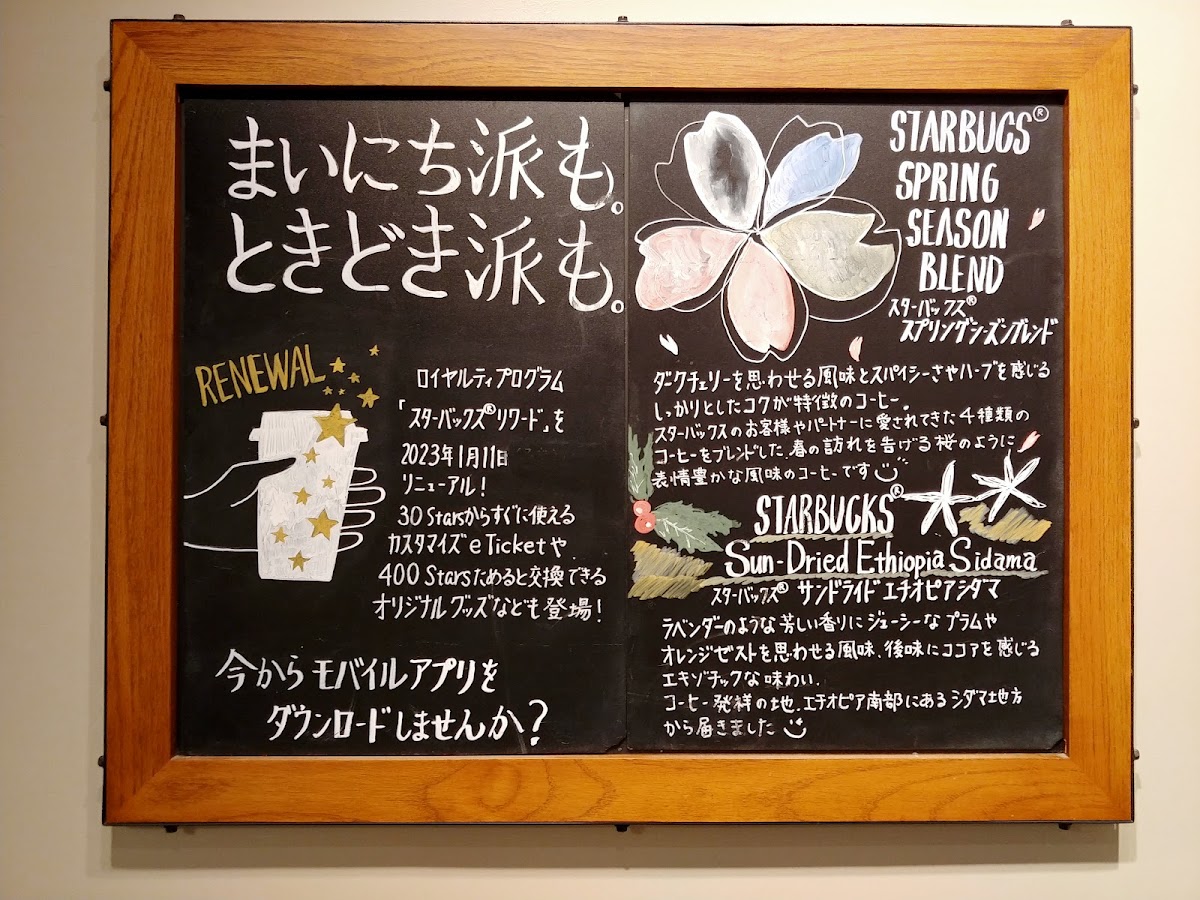 まいにち派も。
ときどき派も。
RENEWAL
ロイヤルティプログラム
「スターバックス®リワード」を
2023年1月11日
リニューアル！
30 Starsからすぐに使える
カスタマイズeTicketや
400 Starsためると交換できる
オリジナルグッズなども登場！
今からモバイルアプリを
ダウンロードしませんか？
STARBUGS®
SPRING
SEASON
BLEND
スターバックス®
スプリングシーズンブレンド
ダークチェリーを思わせる風味とスパイシーさやハーブを感じる
しっかりとしたコクが特徴のコーヒー。
スターバックスのお客様やパートナーに愛されてきた4種類の
コーヒーをブレンドした、春の訪れを告げる桜のように
表情豊かな風味のコーヒーです
STARBUCKS®
Sun-Dried Ethiopia Sidama
スターバックス® サンドライドエチオピアシダマ
ラベンダーのような芳しい香りにジューシーなプラムや
オレンジゼストを思わせる風味、後味にココアを感じる
エキゾチックな味わい。
コーヒー発祥の地、エチオピア南部にあるシダマ地方
から届きました